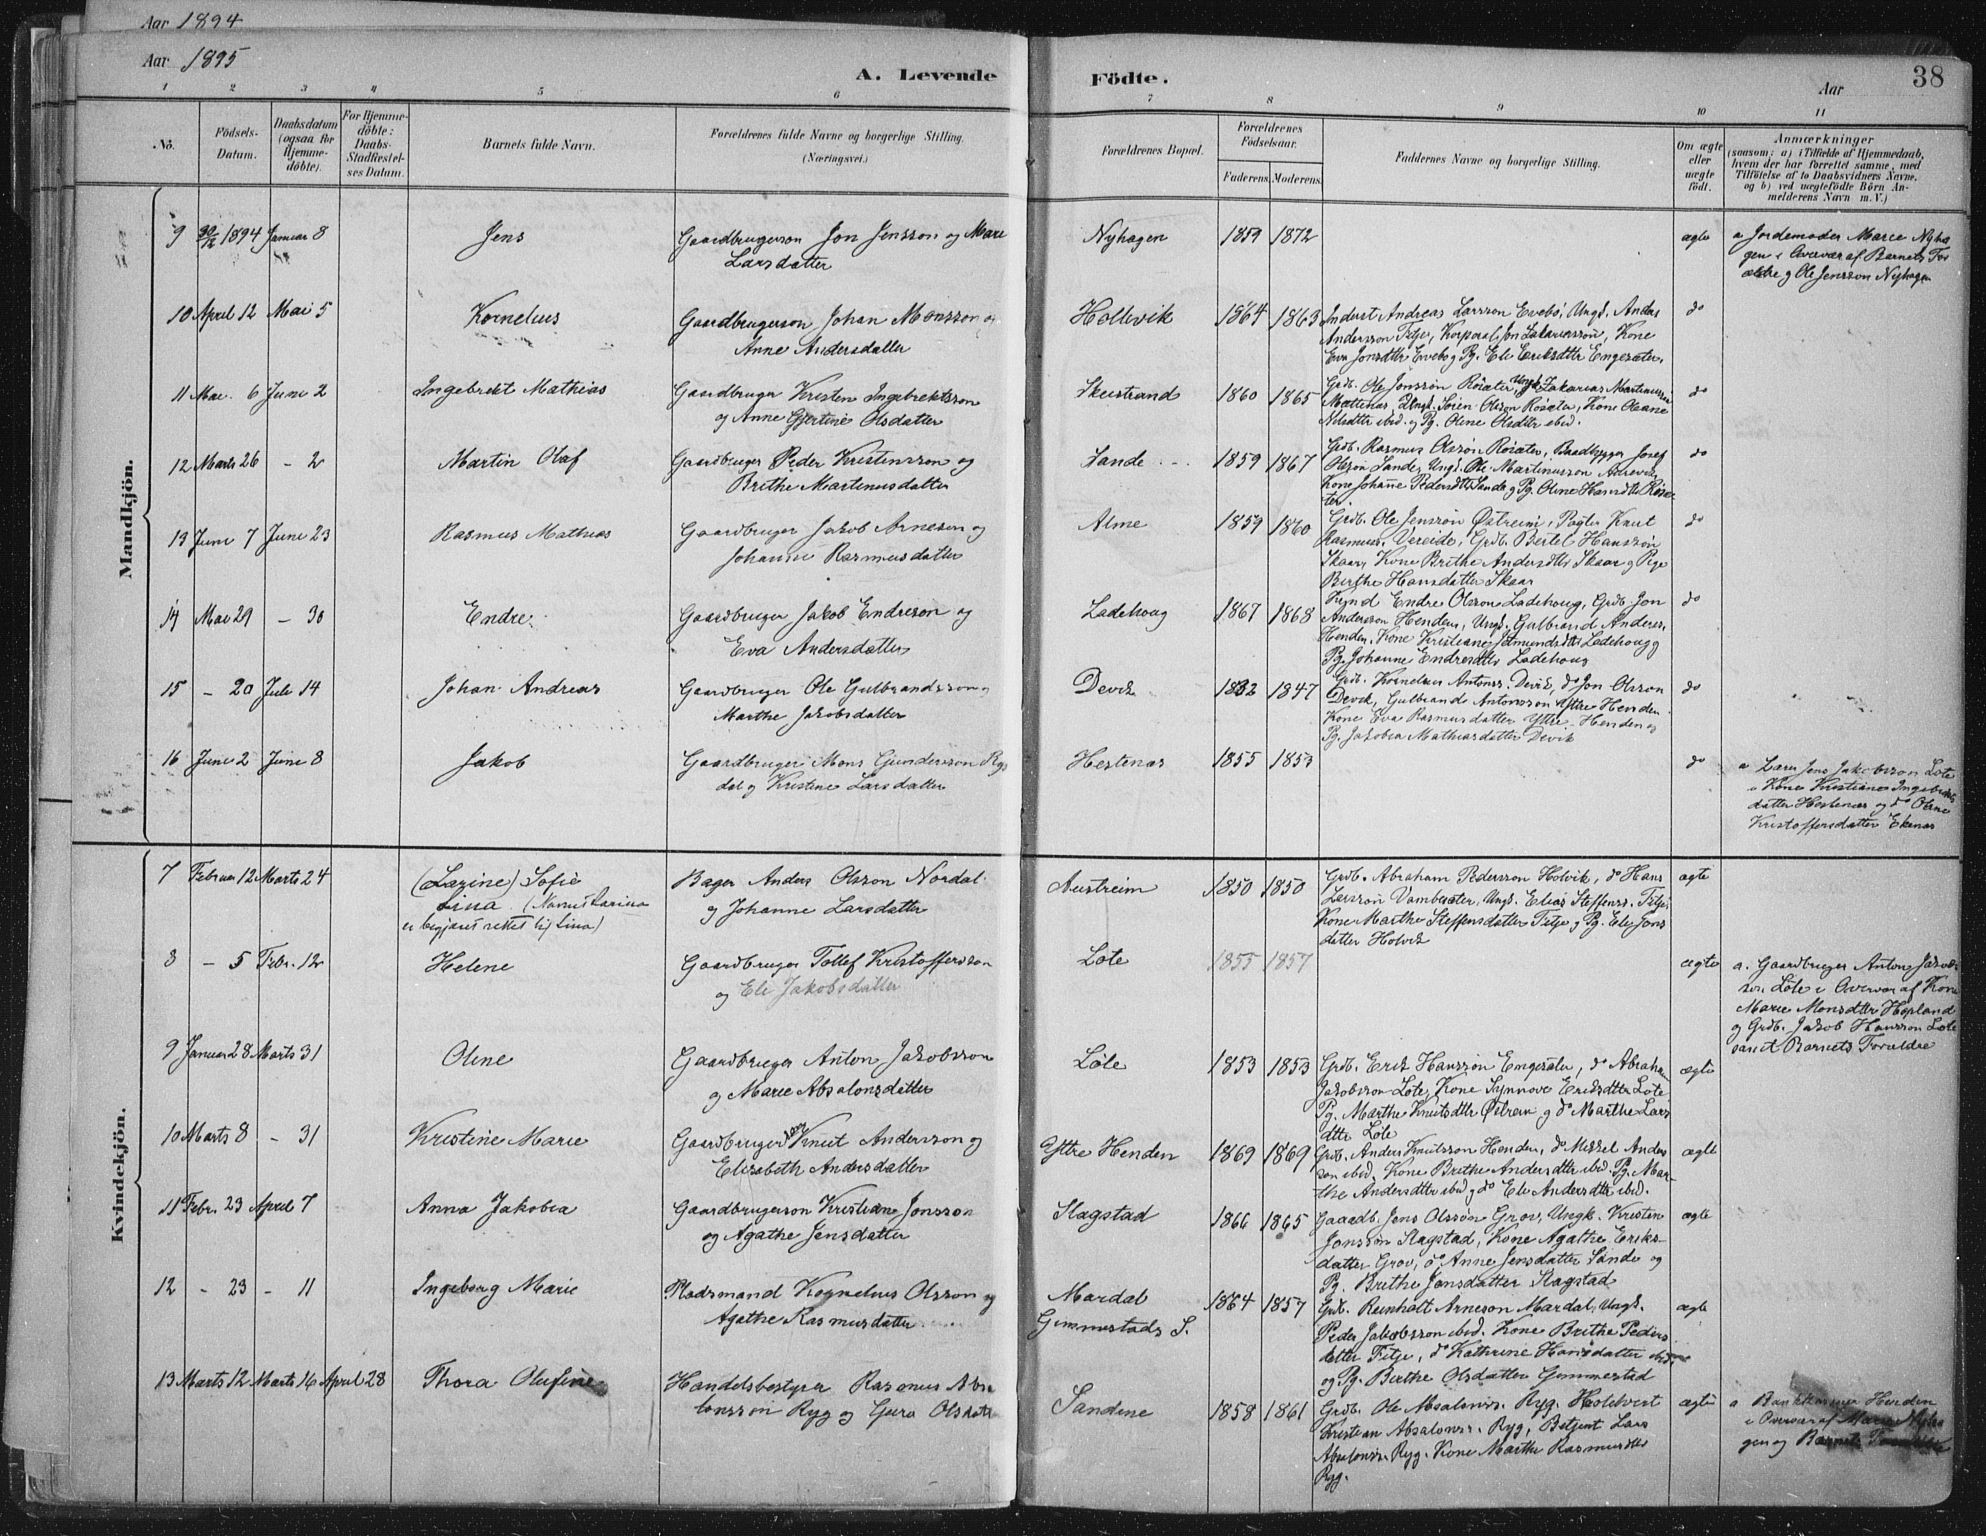 Aar 1894
Aar 1895
A. Levende Födte.
Aar
38
1 2 3 4 5 6 7 8 9 10 11
No.
Födsels-Datum.
Daabsdatum (ogsaa for Hjemme-döbte).
For Hjemme-döbte: Daabs-Stadfæstel-ses Datum.
Barnets fulde Navn.
Forældrenes fulde Navne og borgerlige Stilling. (Næringsvei.)
Forældrenes Bopæl.
Forældrenes Födselsaar.
Faderens. Moderens.
Faddernes Navne og borgerlige Stilling.
Om ægte eller uægte födt.
Anmærkninger
(saasom: a) i Tilfælde af Hjemmedaab,
hvem der har forrettet samme, med
Tilföielse af to Daabsvidners Navne,
og b) ved uægtefödte Börn An-
melderens Navn m. V.)
Mandkjön.
9 30/12 1894 Januar 8 Jens Gaardbrugerson Jon Jensson og Mari
Larsdatter
Nyhagen 1859 1872 ægte a Jordemoder Marie Nyha
gen i Overvær af Barnets For
ældre og Ole Jensson Nyhagen
10 April 12 Mai 5 Kornelius Gaardbrugerson Johan Monsson og
Anne Andersdatter
Hollevik 1864 1863 Inderst Andreas Larsson Evebø, Ungk. Anders
Andersson Fitje, Korporal Jon Zakariassøn, Kone
Eva Jonsdtr Evebø og Pg. Eli Eriksdtr Engesæter.
do
11 Mai 6 Juni 2 Ingebrekt Mathias Gaardbruger Kristen Ingebrektsson
og Anne Gjertine Olsdatter
Skeistrand 1860 1865 Grdb. Ole Jonssøn Røsæter, Ungk. Zakarias Martinussøn
Mættenæs Ungk. Søren Olsson Røsæter, Kone Oliane
Nilsdtr ibid. og Pg. Oline Olsdtr ibid.
do
12 Marts 26 - 2 Martin Olaf Gaardbruger Peder Kristensson og
Brithe Martinusdatter
Sande 1859 1867 Grdb. Rasmus Olssøn Røsæter, Baadbygger Josef
Olsson Sande, Ungk. Ole Martinussøn Aarevik,
Kone Johanne Pedersdtr Sande og Pg. Oline Hansdtr Røsæ-
ter.
do
13 Juni 7 Juni 23 Rasmus Mathias Gaardbruger Jakob Arneson og
Johanne Rasmusdatter
Alme 1859 1860 Grdb. Ole Jenssøn Østreim, Pogter Knut
Rasmuss. Vereide, Grdb. Bertel Hanssøn
Skaar, Kone Brithe Andersdtr Skaar og Pige
Berthe Hansdatter Skaar
do
14 Mai 29 - 30 Endre Gaardbruger Jakob Endreson og
Eva Andersdatter
Ladehoug 1867 1868 Endre Olsson Ladehoug, Grdb. Jon
Andersson Henden, Ungk. Gulbrand Anderss.
Henden, Kone Kristiane Ladehoug og
Pg. Johanne Endresdtr Ladehoug
do
15 - 20 Juli 14 Johan Andreas Gaardbruger Ole Gulbrandsson og
Marthe Jakobsdatter
Devik 1832 1847 Grdb. Kornelius Antonss. Devik, do Jon Olsson
Devik, Gulbrand Antonsson Yttre Henden
Kone Eva Rasmusdatter Yttre Henden og
Pg. Jakobea Mathiasdatter Devik
do
16 Juni 2 Juni 8 Jakob Gaardbruger Mons Gunderson Ryg
dal og Kristene Larsdatter
Hestenæs 1855 1853 do a Lærer Jens Jakobsson Løte
i Kone Kristiane Ingebrikts
datter Hestenæs og do Oline
Kristoffersdatter Ekenæs
Kvindekjön.
7 Februar 12 Marts 24 (Larine) Sofie
Lina. (Navnet Larina
er begjært rettet til Lina)
Bager Anders Olsson Nordal
og Johanne Larsdatter
Austreim 1850 1850 Grdb. Abraham Pedersson Holvik, do Hans
Larsson Vambesæter, Ungk. Elias Steffenss. Fitje,
Kone Marthe Steffensdatter Fitje og Pg. Eli Jons
datter Holvik
ægte
8 - 5 Febr. 12 Helene Gaardbruger Tollef Kristoffersson
og Eli Jakobsdatter
Løte 1855 1857 ægte a. Gaardbruger Anton Jakob
son Løte i Overvær af Kone
Marie Monsdtr Hopland
og Grdb. Jakob Hansson Løte
samt Barnets Forældre
9 Januar 28 Marts 31 Oline Gaardbruger Anton Jakobsson
og Marie Absalonsdatter
Løte 1853 1853 Grdb. Erik Hanssøn Engesæter, do Abraham
Jakobsson Løte, Kone Synnøve Eriksdtr Løte
Pg. Marthe Knutsdtr Østrem og do Marthe Lars
dtr Løte
ægte
10 Marts 8 - 31 Kristine Marie Gaardbruger Knut Andersson og
Elisabeth Andersdatter
Yttre Henden 1869 1869 Grdb. Anders Knutsson Henden, do Mikkel Anders
son ibid, Kone Brithe Andersdtr ibid. Pg. Mar-
the Andersdtr ibid og do Eli Andersdtr ibid.
ægte
11 Febr. 23 April 7 Anna Jakobea Gaardbrugerson Kristian Jonsson
og Agathe Jensdatter
Stagstad 1866 1865 Gaardb. Jens Olssøn Grov, Ungk. Kristen
Jonssøn Stagstad, Kone Agathe Eriks-
datter Grov, do Anne Jensdatter Sande og
Pg. Brithe Jonsdatter Stagstad
ægte
12 - 23 - 11 Ingeborg Marie Pladsmand Kornelius Olsson og
Agathe Rasmusdatter
Mardal
Gimmestads S.
1864 1857 Grdb. Reinholt Arneson Mardal, Ungk.
Peder Jakobsson ibid. Kone Brithe Peders
datter Fitje, do Kathrine Hansdatter ibid.
og Pg. Berthe Olsdatter Gimmestad
ægte
13 Marts 12 Marts 16 April 28 Thora Olufine Handelsbestyrer Rasmus Absa
lonssøn Ryg og Guro Olsdatter
Sandene 1858 1861 Grdb. Ole Absalonss. Ryg,
Kristian Absalonss. Ryg, Betjent Lars
Absalonss. Ryg. Kone Marthe Rasmusdtr
Ryg.
ægte a Henden
i Overvær af Marie Nyha
gen og Barnets Forældre